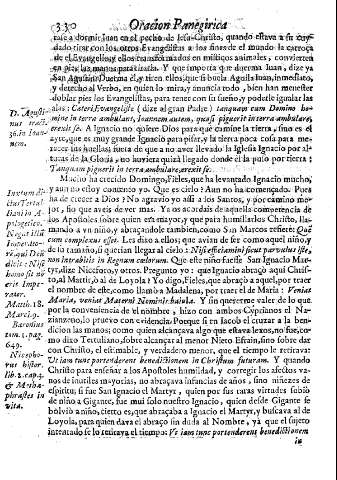 330 Oracion Panegirica
rase a dormir Iuan en el pecho de Iesu-Christo, quando estava a su cuy-
dado tirar con los otros Evangelistas a los fines de el mundo la carroça
de el Evangelio; y ellos transformados en misticos animales, convierten
en pies las manos para tirarla. Y que importa que duerma Iuan, dize ya
San Agustin? Duerma el, y tiren ellos, que si buela Aguila Iuan, inmediato,
y derecho al Verbo, en quien lo mira, y anuncia todo, bien han menester
doblar pies los Evangelistas, para tener con su sueño, y poderle igualar las
alas: Cæteri Evangelistæ (dize el gran Padre) tanquam cum Domino ho-
mine in terra ambulant, Ioannem autem, quasi piguerit in terra ambulare,
erexit se. A Ignacio no quiere Dios para que camine la tierra, sino es el
ayre, que es muy grande Ignacio para pisar, y la tierra poca cosa para me-
recer sus huellas; fuera de que a no aver llevado la Iglesia Ignacio por al-
turas de la Gloria, no huviera quizá llegado donde él la puso por tierra:
Tanquam piguerit in terra ambulare, erexit se.
Mucho ha crecido Domingo, Fieles, que ha levantado Ignacio mucho,
y aun no estoy contento yo. Que es cielo? Aun no ha començado. Pues
ha de crecer a Dios? No agravio yo assi a los Santos, y por camino me-
jor, fio que aveis de ver mas. Ya os acordais de aquella competencia de
los Apostoles sobre quien era mayor, y que para humillarlos Christo, lla-
mando a vn niño, y abraçandole tambien, como San Marcos refiere: Quē
cum complexus esset. Les dixo a ellos; que avian de ser como aquel niño, y
de su tamaño, si querian llegar al cielo: Nisi efficiamini sicut parvulus iste,
non intrabitis in Regnum cælorum. Que este niño fuesse San Ignacio Mar-
tyr, dize Niceforo, y otros. Pregunto yo: que Ignacio abraço aqui Chris-
to, al Martir, ò al de Loyola? Yo digo, Fieles, que abraço a aquel, por traer
el nombre de este, como llamò a Madalena, por traer el de Maria: Veniat
Maria, veniat Materni Nominis hæredula. Y sin quererme valer de lo que
por la conveniencia de el nombre, hizo con ambos Cyprianos el Na-
zianzeno, lo pruevo con evidencia: Porque si en Iacob el cruzar a la ben-
dicion las manos; como quien alcançava algo que estava lexos, no fue, co-
mo dixo Tertuliano, sobre alcançar al menor Nieto Efrain, sino sobre dar
con Christo, el estimable, y verdadero menor, que el tiempo le retirava:
Vt iam tunc portenderent benedictionem in Christum futuram. Y quando
Christo para enseñar a los Apostoles humildad, y corregir los afectos va-
nos de inutiles mayorias, no abraçava infancias de años, sino niñezes de
espiritu; si fue San Ignacio el Martyr, quien por sus raras virtudes subiò
de niño a Gigante, fue mui solo nuestro Ignacio, quien desde Gigante se
bolviò a niño, cierto es, que abraçava a Ignacio el Martyr, y buscava al de
Loyola, para quien dava el abraço sin duda al Nombre, ya que el sujeto
intentado se lo retirava el tiempo: Vt iam tunc portenderent benedictionem
in
D. Agusti-
nus tract.
36. in Ioan-
nem.
Matth. 18.
Marci. 9.
Baronius
tom. 1. pag.
649.
Nicepho-
rus histor.
lib. 2. cap. 3.
& Metha-
phrastes in
vita.